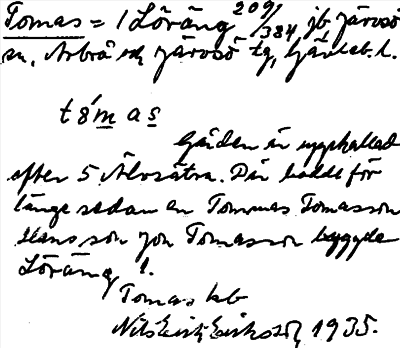 Tomas = 1 Löräng 209/384 jb Järvsö
sn, Arbrå och Järvsö tg, Gävleb. l.
t8́mas
Gården är uppkallad
efter 5 Älvsätra. Där bodde för
länge sedan en Tommas Tomasson
Hans son Jon Tomasson byggde
Löräng 1.
Tomas
Nils Erik Eriksson, 1935.